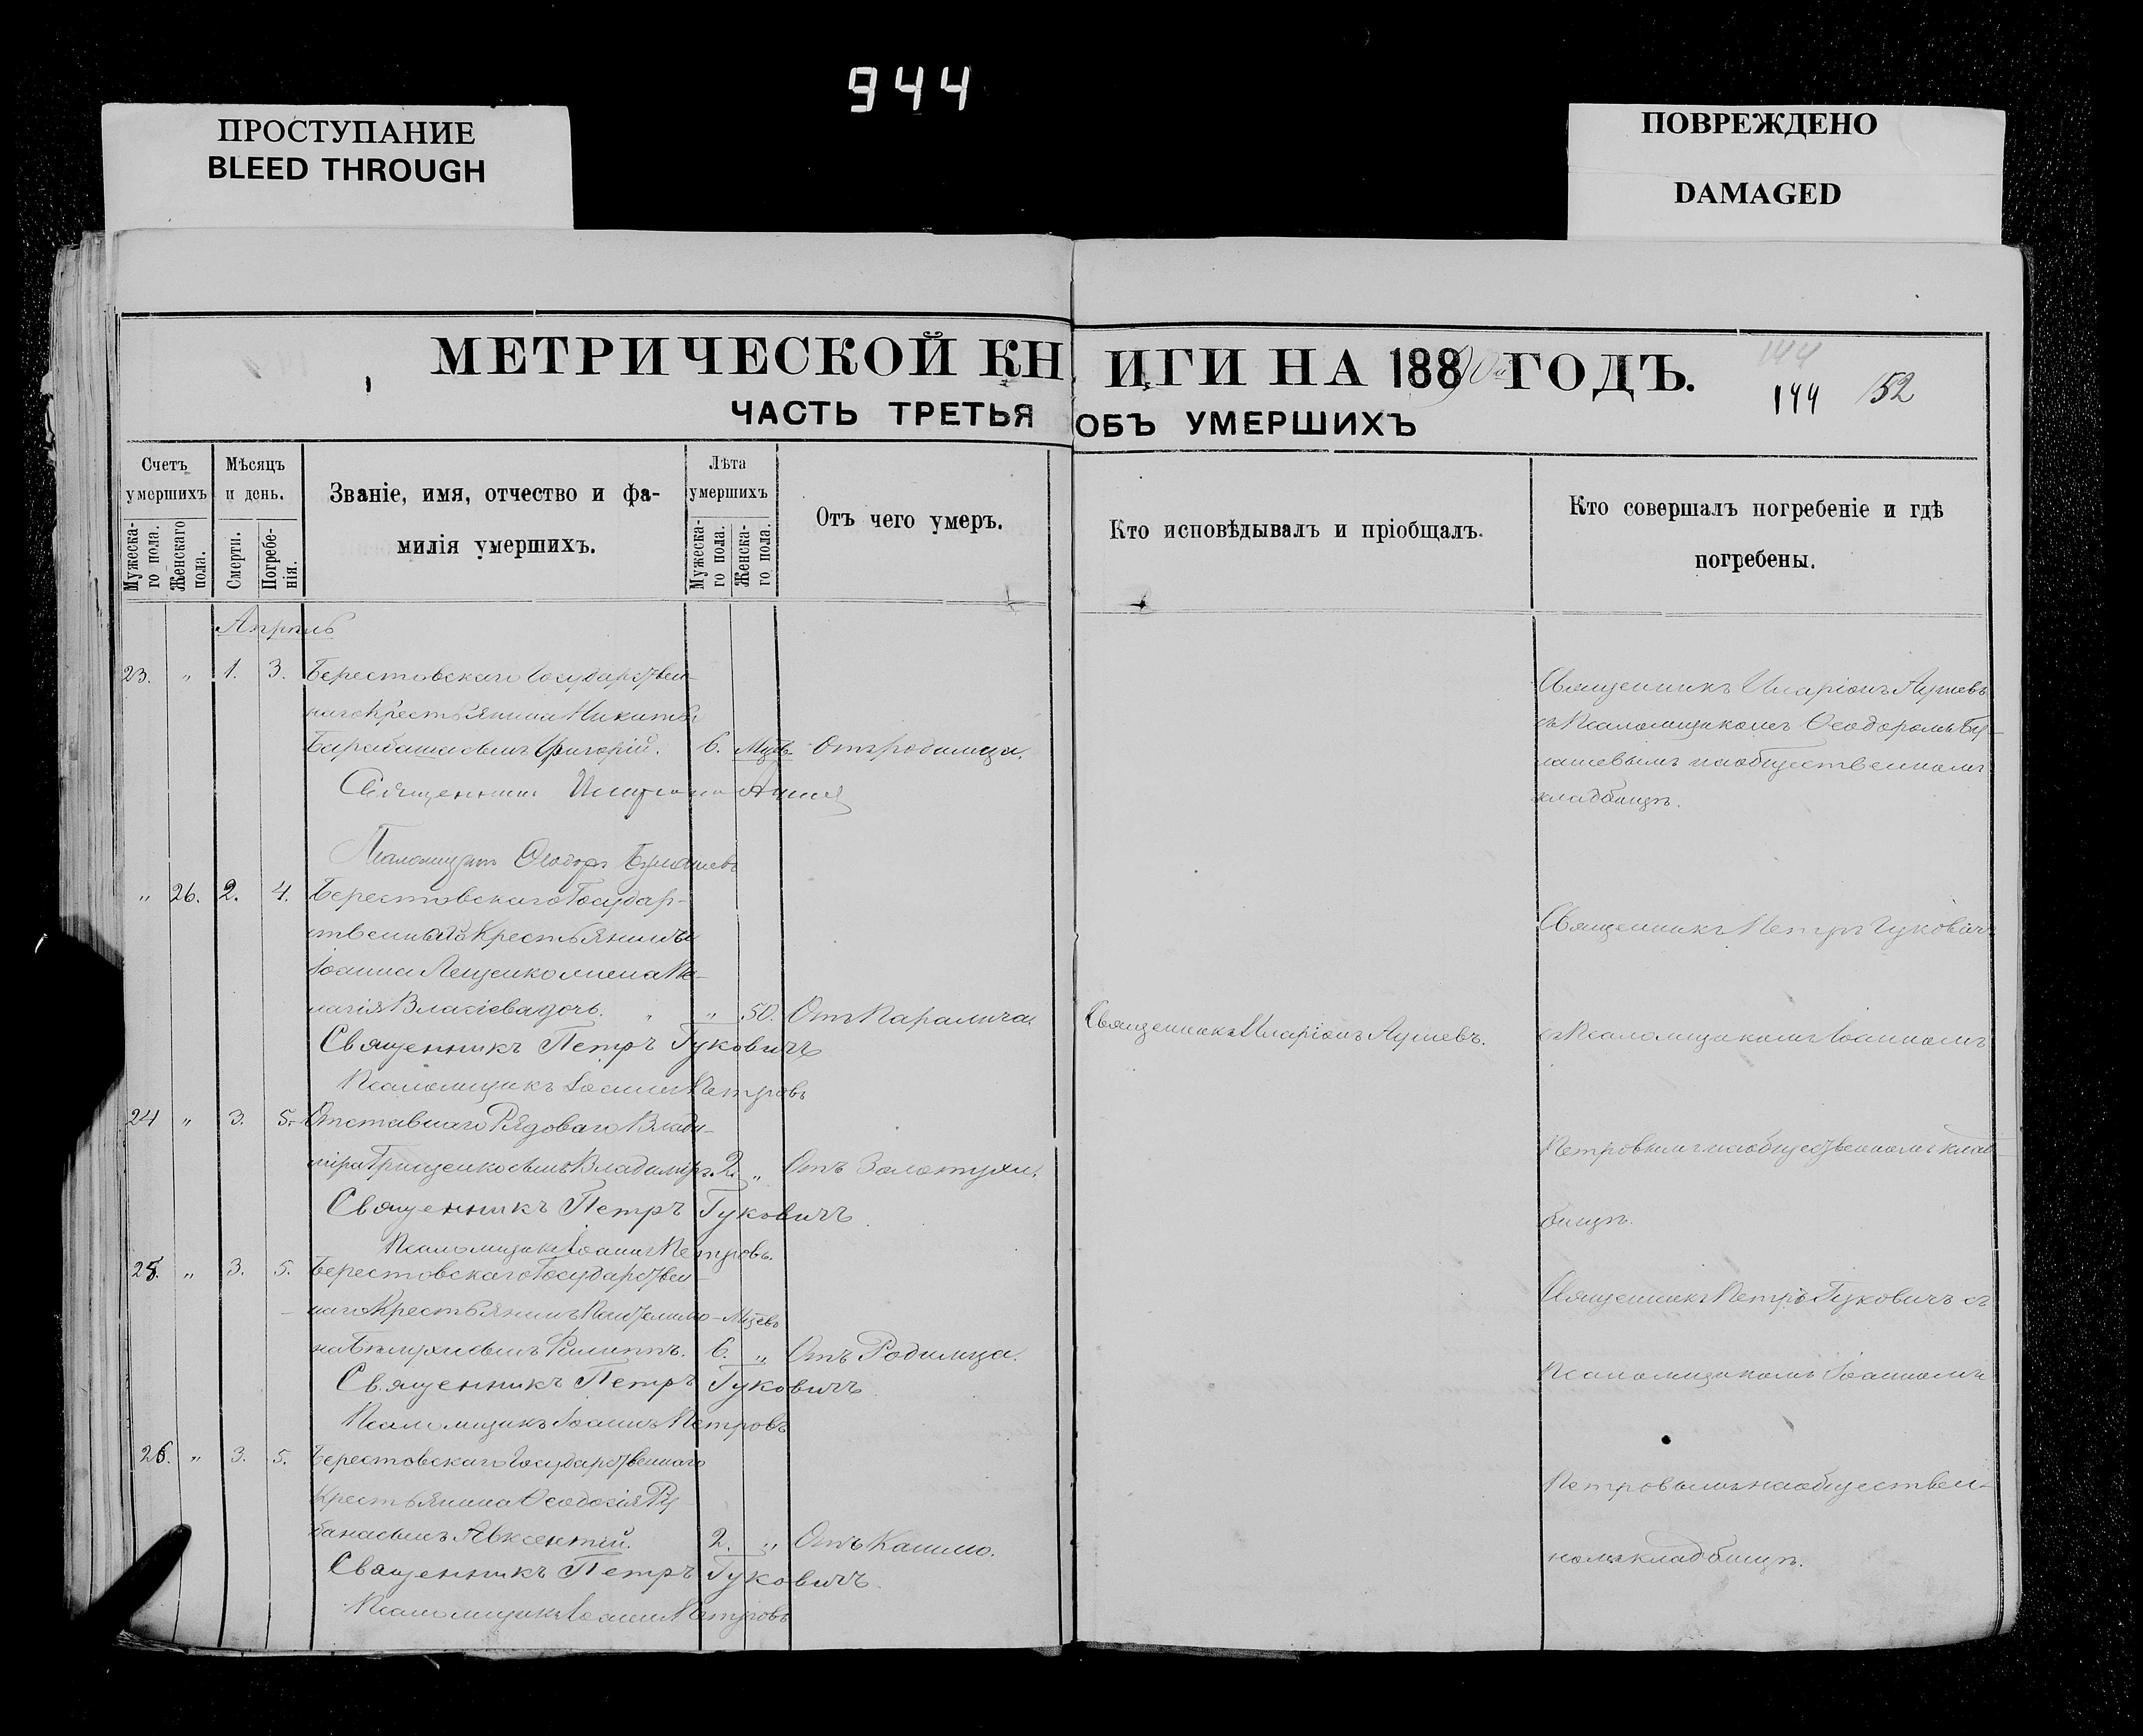 944
ПРОСТУПАНИЕ
BLEED THROUGH
ПОВРЕЖДЕНО
DAMAGED
МЕТРИЧЕСКОЙ КНИГИ НА 188 ГОДЪ.
144
144 152
ЧАСТЬ ТРЕТЬЯ ОБЪ УМЕРШИХЪ
Счетъ умершихъ
Мужеска-го пола.
Женскаго пола.
Мѣсяцъ и день.
Смерти.
Погребе-нія.
Званіе, имя, отчество и фа-
милія умершихъ.
Лѣта умершихъ
Мужеска-го пола.
Женска-го пола.
Отъ чего умеръ.
Кто исповѣдывалъ и пріобщалъ.
Кто совершалъ погребеніе и гдѣ
погребены.
Апрѣль
23. " 1. 3. Берестовскаго Государствен-
наго Крестьянина Никиты
Барабаша сынъ Григорій. 6. Мцвъ Отъ родимца.
Священникъ Иларіонъ
Псаломщикъ Ѳеодоръ
Священникъ Иларіонъ
съ Псаломщикомъ Ѳеодоромъ
на общественномъ
кладбищѣ.
" 26. 2. 4. Берестовскаго Государ-
ственнаго Крестьянина
Іоанна Лещенко жена Пе-
лагія Власіева дочь. " 50. Отъ Паралича.
Священникъ Иларіонъ
Священникъ Петръ Гуковичъ
Псаломщикъ Іоаннъ Петровъ
Священникъ Петръ Гуковичъ
съ Псаломщикомъ Іоанномъ
Петровымъ на общественномъ клад-
бищѣ.
24 " 3. 5. Отставнаго Рядоваго Влади-
міра Грищенко сынъ Владиміръ. 2. " Отъ Золотухи.
Священникъ Петръ Гуковичъ
Псаломщикъ Іоаннъ Петровъ.
25. " 3. 5. Берестовскаго Государствен-
наго Крестьянина Пантелимо- Мцевъ
на сынъ Филиппъ. 6. " Отъ Родимца.
Священникъ Петръ Гуковичъ
Псаломщикъ Іоаннъ Петровъ
Священникъ Петръ Гуковичъ съ
Псаломщикомъ Іоанномъ
Петровымъ на обществен-
номъ кладбищѣ.
26. " 3. 5. Берестовскаго Государственнаго
Крестьянина Ѳеодосія Ру-
бана сынъ Авксентій. 2. " Отъ Кашлю.
Священникъ Петръ Гуковичъ.
Псаломщикъ Іоаннъ Петровъ